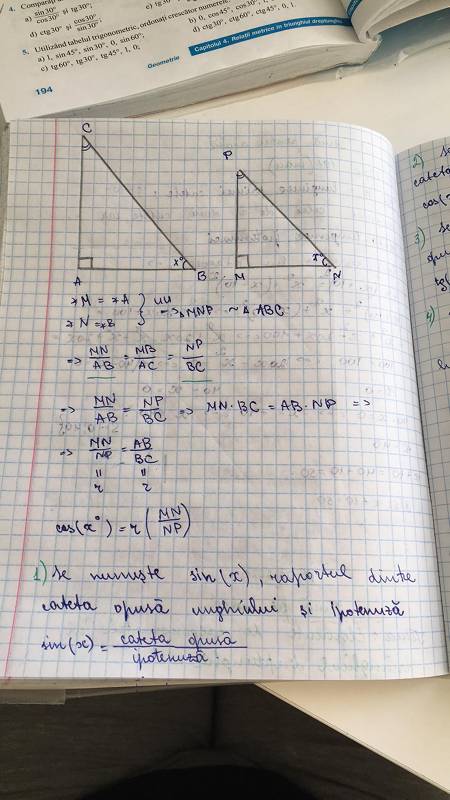 4. Comparați
a) sin30°/cos30° și tg30°;
d) ctg30° și cos30°/sin30°.
5. Utilizând tabelul trigonometric, ordonați crescător numerele:
a) 1, sin45°, sin30°, 0, sin60°;
b) 0, cos45°, cos30°,
c) tg60°, tg30°, tg45°, 1, 0;
d) ctg30°, ctg60°, ctg45°, 0, 1.
194
Geometrie
Capitolul 4. Relații metrice în triunghiul dreptunghic
C
P
x°
x°
A
B
M
N
∢M = ∢A } UU
∢N = ∢B } => ΔMNP ~ ΔABC
=> MN/AB = MB/AC = NP/BC
=> MN/AB = NP/BC => MN·BC = AB·NP =>
=> MN/NP = AB/BC
" "
r r
cos(x°) = r (MN/NP)
1) Se numește sin(x), raportul dintre
cateta opusă unghiului și ipotenuză
sin(x) = cateta opusă/ipotenuză
2) Se
cateta
cos(x
3) Se
tg(
4)